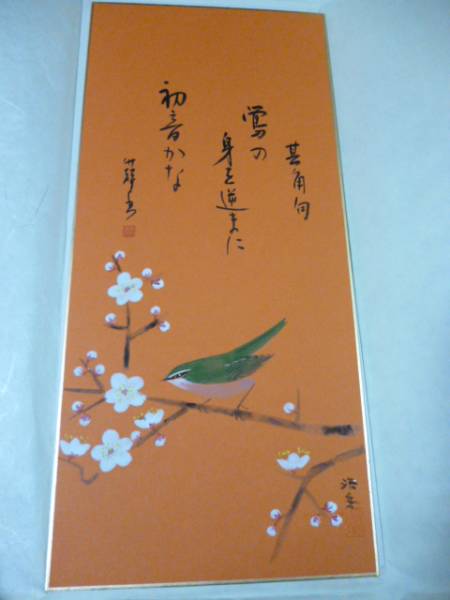 其角句
鶯の
身を逆まに
初音かな